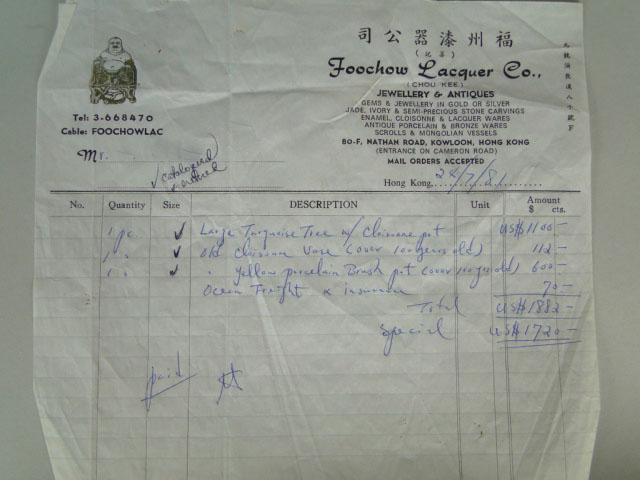 福州漆器公司
(記喜)
Foochow Lacquer Co.,
(CHOU KEE)
JEWELLERY & ANTIQUES
GEMS & JEWELLERY IN GOLD OR SILVER
JADE, IVORY & SEMI-PRECIOUS STONE CARVINGS
ENAMEL, CLOISONNE & LACQUER WARES
ANTIQUE PORCELAIN & BRONZE WARES
SCROLLS & MONGOLIAN VESSELS
80-F, NATHAN ROAD, KOWLOON, HONG KONG
(ENTRANCE ON CAMERON ROAD)
MAIL ORDERS ACCEPTED
Tel: 3-668470
Cable: FOOCHOWLAC
Mr.
Catalogued
Hong Kong, 24/7/81
No. Quantity Size DESCRIPTION Unit Amount $ cts.
1 pc ✓ Large Turquoise Tree w/ Cloisonne pot US$1100-
1 " ✓ Old Cloisonne Vase (over 100 years old) 112-
1 " ✓ " Yellow porcelain Brush pot (over 100 yrs old) 600-
Ocean Freight & insurance 70-
Total US$1882-
Special US$1720-
paid